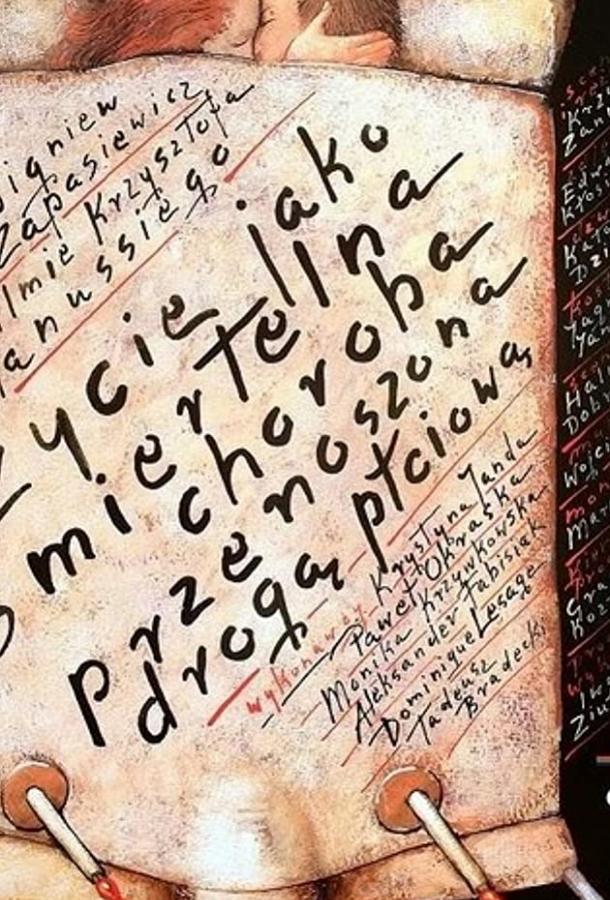 igniew
Zapasiewicz
lmie Krzysztofa
anussiego
życie jako
śmiertelna
choroba
przenoszona
drogą płciową
wykonawcy Krystyna Janda
Paweł Okraska
Monika Krzywkowska
Aleksander Fabisiak
Dominique Lesage
Tadeusz
Bradecki
Krz
Zan
Edw
Kłos
Kat
Dzi
kos
Jag
Hali
Dob
Wojc
Mar
Gra
Koz
Ziu